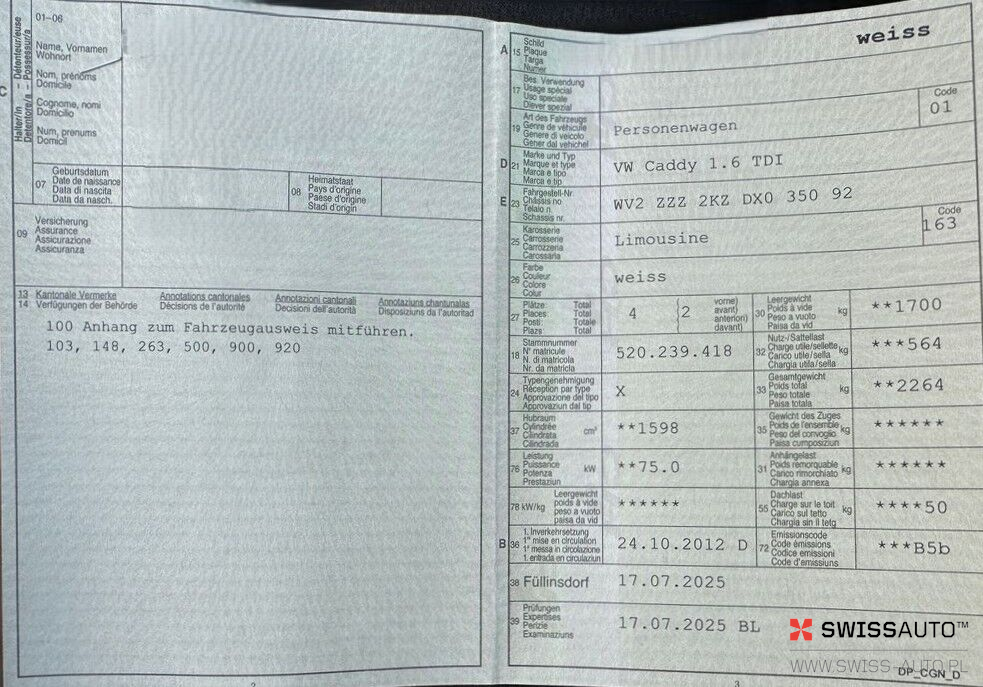 Halter/in – Détenteur/euse
Detentore/a – Possessur/a
C
01-06
Name, Vornamen
Wohnort
Nom, prénoms
Domicile
Cognome, nomi
Domicilio
Num, prenums
Domicil
07
Geburtsdatum
Date de naissance
Data di nascita
Data da nasch.
08
Heimatstaat
Pays d'origine
Paese d'origine
Stadi d'origin
09
Versicherung
Assurance
Assicurazione
Assicuranza
13 Kantonale Vermerke Annotations cantonales Annotazioni cantonali Annotaziuns chantunalas
14 Verfügungen der Behörde Décisions de l'autorité Decisioni dell'autorità Disposiziuns da l'autoritad
100 Anhang zum Fahrzeugausweis mitführen.
103, 148, 263, 500, 900, 920
2
A 15
Schild
Plaque
Targa
Numer
weiss
17
Bes. Verwendung
Usage spécial
Uso speciale
Diever spezial
19
Art des Fahrzeugs
Genre de véhicule
Genere di veicolo
Gener dal vehichel
Personenwagen
Code
01
D 21
Marke und Typ
Marque et type
Marca e tipo
Marca e tip
VW Caddy 1.6 TDI
E 23
Fahrgestell-Nr.
Châssis no
Telaio n.
Schassis nr.
WV2 ZZZ 2KZ DX0 350 92
25
Karosserie
Carrosserie
Carrozzeria
Carossaria
Limousine
Code
163
26
Farbe
Couleur
Colore
Colur
weiss
27
Plätze: Total
Places: Total
Posti: Totale
Plazs: Total
4
(2
vorne)
avant)
anteriori)
davant)
30
Leergewicht
Poids à vide
Peso a vuoto
Paisa da vid
kg
**1700
18
Stammnummer
N° matricule
N. di matricola
Nr. da matricla
520.239.418
32
Nutz-/Sattellast
Charge utile/sellette
Carico utile/sella
Chargia utila/sella
kg
***564
24
Typengenehmigung
Réception par type
Approvazione del tipo
Approvaziun dal tip
X
33
Gesamtgewicht
Poids total
Peso totale
Paisa totala
kg
**2264
37
Hubraum
Cylindrée
Cilindrata
Cilindrada
cm³
**1598
35
Gewicht des Zuges
Poids de l'ensemble
Peso del convoglio
Paisa cumposiziun
kg
******
76
Leistung
Puissance
Potenza
Prestaziun
kW
**75.0
31
Anhängelast
Poids remorquable
Carico rimorchiato
Chargia annexa
kg
******
78 kW/kg
Leergewicht
poids à vide
peso a vuoto
paisa da vid
******
55
Dachlast
Charge sur le toit
Carico sul tetto
Chargia sin il tetg
kg
****50
B 36
1. Inverkehrsetzung
1re mise en circulation
1a messa in circolazione
1. entrada en circulaziun
24.10.2012 D
72
Emissionscode
Code émissions
Codice emissioni
Code d'emissiuns
***B5b
38 Füllinsdorf 17.07.2025
39
Prüfungen
Expertises
Perizie
Examinaziuns
17.07.2025 BL
SWISSAUTO™
WWW.SWISS-AUTO.PL
DP_CGN_D
3